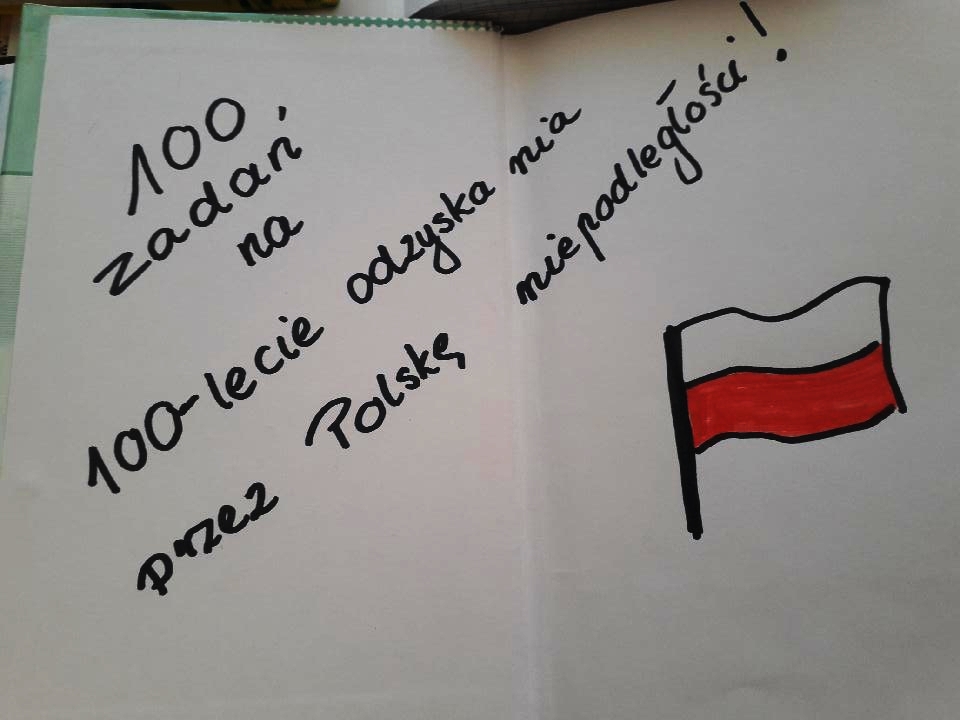 100
zadań
na
100-lecie odzyskania
przez Polskę niepodległości!